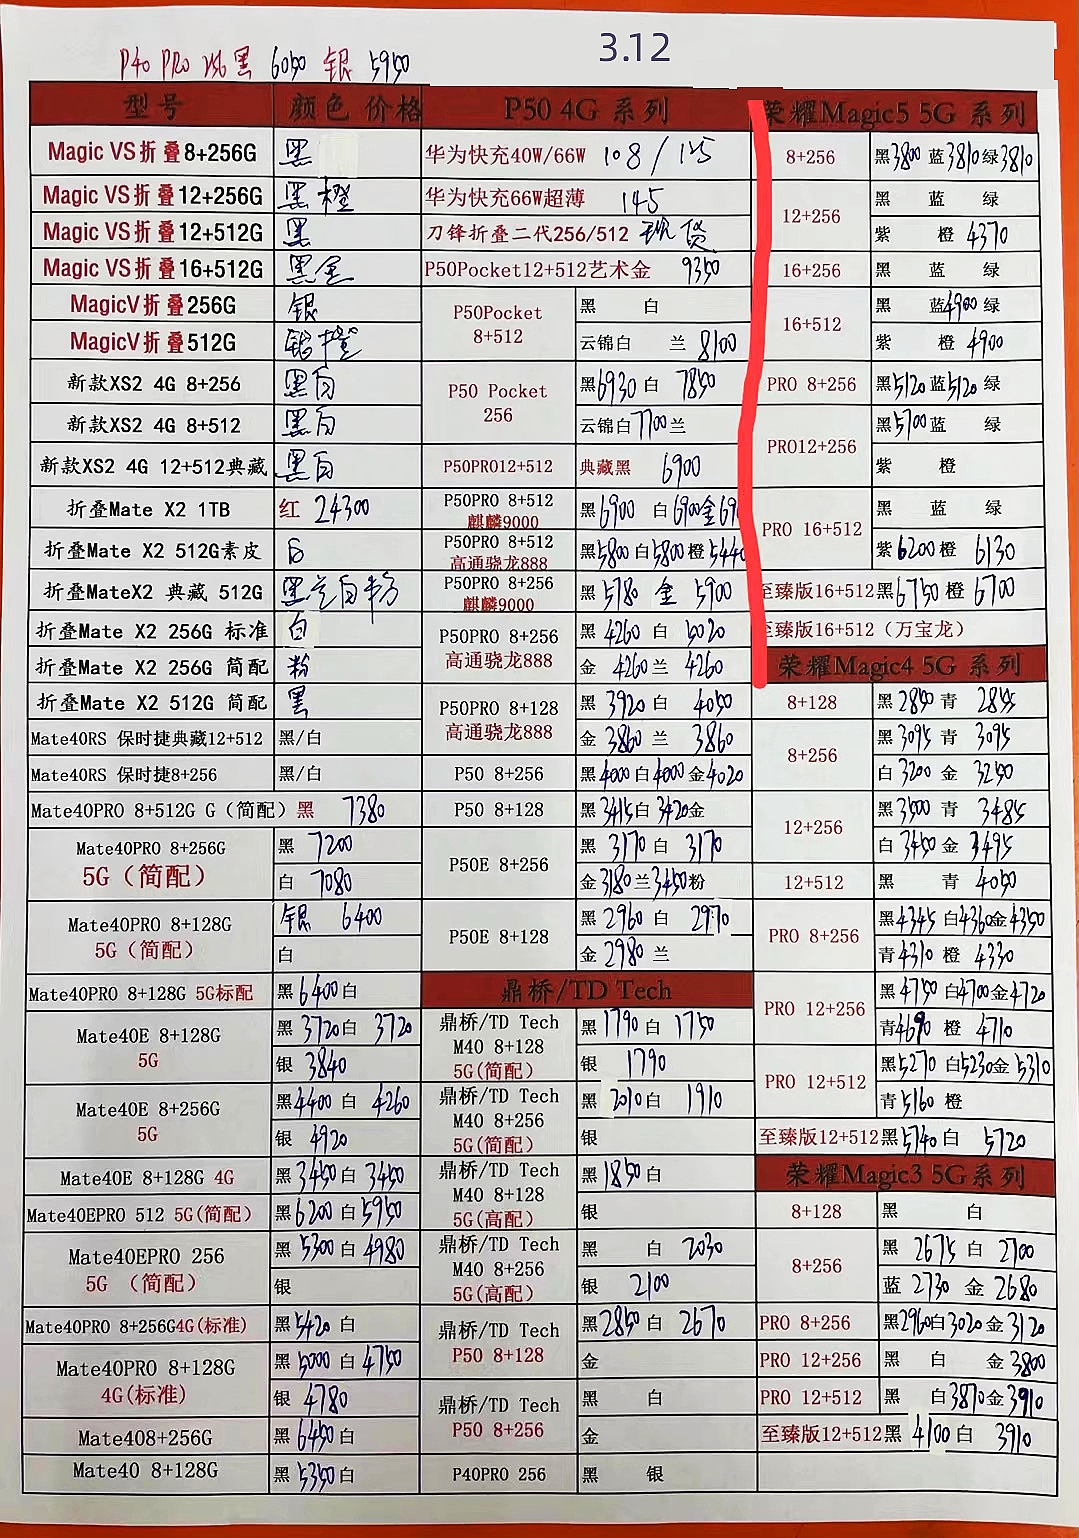 3.12
P40 PRO 256 黑 6050 银 5950
型号 颜色 价格
Magic VS折叠8+256G 黑
Magic VS折叠12+256G 黑 橙
Magic VS折叠12+512G 黑
Magic VS折叠16+512G 黑金
MagicV折叠256G 银
MagicV折叠512G 银橙
新款XS2 4G 8+256 黑白
新款XS2 4G 8+512 黑白
新款XS2 4G 12+512典藏 黑白
折叠Mate X2 1TB 红 24300
折叠Mate X2 512G素皮 白
折叠MateX2 典藏 512G 黑兰白粉
折叠Mate X2 256G 标准 白
折叠Mate X2 256G 简配 粉
折叠Mate X2 512G 简配 黑
Mate40RS 保时捷典藏12+512 黑/白
Mate40RS 保时捷8+256 黑/白
Mate40PRO 8+512G G（简配）黑 7380
Mate40PRO 8+256G 黑 7200
5G（简配） 白 7080
Mate40PRO 8+128G 银 6400
5G（简配） 白
Mate40PRO 8+128G 5G标配 黑6400白
Mate40E 8+128G 黑3720白 3720
5G 银 3840
Mate40E 8+256G 黑4400 白 4260
5G 银 4920
Mate40E 8+128G 4G 黑3450白 3450
Mate40EPRO 512 5G(简配） 黑6200白5950
Mate40EPRO 256 黑 5300白4980
5G （简配） 银
Mate40PRO 8+256G4G(标准) 黑5420 白
Mate40PRO 8+128G 黑5000 白4750
4G(标准) 银 4780
Mate408+256G 黑6450白
Mate40 8+128G 黑5350白
P50 4G 系列
华为快充40W/66W 108 / 125
华为快充66W超薄 145
刀锋折叠二代256/512 现货
P50Pocket12+512艺术金 9350
P50Pocket 黑 白
8+512 云锦白 兰 8100
P50 Pocket 黑6930 白 7850
256 云锦白7700兰
P50PRO12+512 典藏黑 6900
P50PRO 8+512 麒麟9000 黑6900 白6900金69
P50PRO 8+512 高通骁龙888 黑5800白5800橙5440
P50PRO 8+256 麒麟9000 黑 5780 金 5900
P50PRO 8+256 黑 4260 白 5020
高通骁龙888 金 4260兰 4260
P50PRO 8+128 黑 3920 白 4050
高通骁龙888 金 3860 兰 3860
P50 8+256 黑4000白4000金4020
P50 8+128 黑3415白3420金
P50E 8+256 黑 3170 白 3170
金3180兰3450粉
P50E 8+128 黑 2960 白 2970
金 2980 兰
鼎桥/TD Tech
鼎桥/TD Tech 黑1790 白 1750
M40 8+128
5G(简配） 银 1790
鼎桥/TD Tech 黑 2010白 1910
M40 8+256
5G(简配） 银
鼎桥/TD Tech 黑1850白
M40 8+128
5G(高配） 银
鼎桥/TD Tech 黑 白 2030
M40 8+256
5G(高配） 银 2100
鼎桥/TD Tech 黑2850白 2670
P50 8+128 金
鼎桥/TD Tech 黑 白
P50 8+256 金
P40PRO 256 黑 银
荣耀Magic5 5G 系列
8+256 黑3800 蓝3810绿3810
12+256 黑 蓝 绿
紫 橙 4370
16+256 黑 蓝 绿
16+512 黑 蓝4900绿
紫 橙 4900
PRO 8+256 黑5120蓝5120绿
PRO12+256 黑5700蓝 绿
紫 橙
PRO 16+512 黑 蓝 绿
紫6200橙 6130
至臻版16+512黑6750橙 6700
至臻版16+512（万宝龙）
荣耀Magic4 5G 系列
8+128 黑2850青 2855
8+256 黑3095青 3095
白3200金 3250
12+256 黑3500青 3485
白3450金 3495
12+512 黑 青 4050
PRO 8+256 黑4345 白4360金4350
青4310橙 4330
PRO 12+256 黑4750白4700金4720
青4690橙 4710
PRO 12+512 黑5270白5230金5310
青5160橙
至臻版12+512黑5740白 5720
荣耀Magic3 5G系列
8+128 黑 白
8+256 黑 2675 白 2700
蓝 2730 金 2680
PRO 8+256 黑2960白3020金3120
PRO 12+256 黑 白 金3800
PRO 12+512 黑 白3870金3910
至臻版12+512黑 4100白 3910